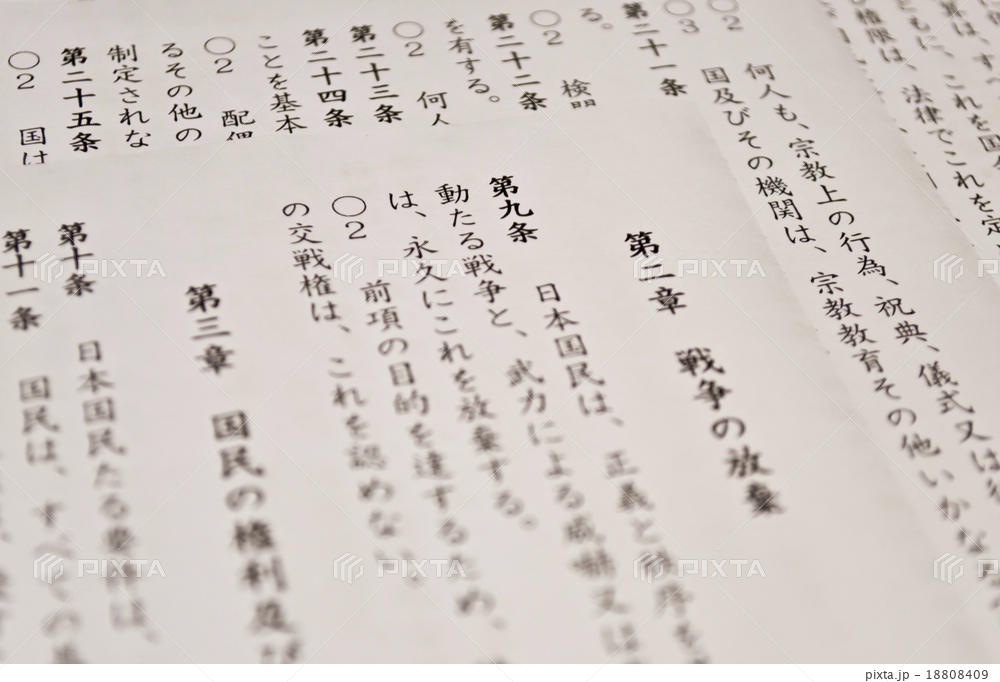 ともに、これを国
権限は、法律でこれを定
○2 何人も、宗教上の行為、祝典、儀式又は
○3 国及びその機関は、宗教教育その他いかな
第二十一条
る。
○2 検
第二十二条
を有する。
○2 何人
第二十三条
第二十四条
ことを基本
○2 配
るその他の
制定されな
第二十五条
○2 国は
第二章 戦争の放棄
第九条 日本国民は、正義と秩序を
動たる戦争と、武力による威嚇又は
は、永久にこれを放棄する。
○2 前項の目的を達するため、
の交戦権は、これを認めない。
第三章 国民の権利及び
第十条 日本国民たる要件は、
第十一条 国民は、すべての基
PIXTA
pixta.jp - 18808409